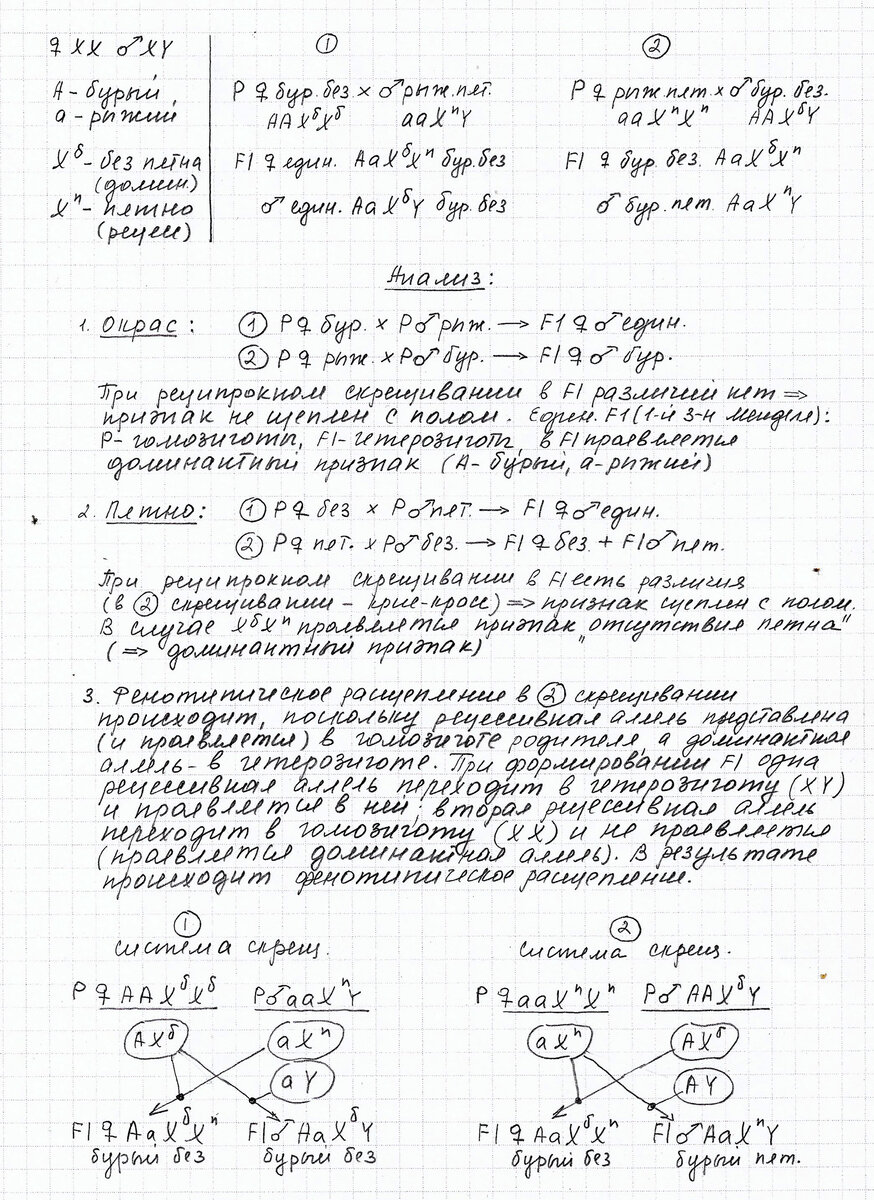 ♀ XX ♂ XY ① ②
А - бурый, P ♀ бур. без. × ♂ рыж. пят. P ♀ рыж. пят. × ♂ бур. без.
а - рыжий AAXᵟXᵟ aaXⁿY aaXⁿXⁿ AAXᵟY
Xᵟ - без пятна F1 ♀ един. AaXᵟXⁿ бур. без F1 ♀ бур. без. AaXᵟXⁿ
(домин)
Xⁿ - пятно ♂ един. AaXᵟY бур. без ♂ бур. пят. AaXⁿY
(рецесс)
Анализ:
1. Окрас: ① P ♀ бур. × P ♂ рыж. → F1 ♀ ♂ един.
② P ♀ рыж. × P ♂ бур. → F1 ♀ ♂ бур.
При реципрокном скрещивании в F1 различий нет ⇒
признак не сцеплен с полом. Един. F1 (1-й з-н Менделя):
P - гомозиготы, F1 - гетерозиготы, в F1 проявляется
доминантный признак (А - бурый, а - рыжий)
2. Пятно: ① P ♀ без × P ♂ пят. → F1 ♀ ♂ един.
② P ♀ пят. × P ♂ без. → F1 ♀ без. + F1 ♂ пят.
При реципрокном скрещивании в F1 есть различия
(в ② скрещивании - крис-кросс) ⇒ признак сцеплен с полом.
В случае XᵟXⁿ проявляется признак „отсутствия пятна"
(⇒ доминантный признак)
3. Фенотипическое расщепление в ② скрещивании
происходит, поскольку рецессивная аллель представлена
(и проявляется) в гомозиготе родителя, а доминантная
аллель - в гетерозиготе. При формировании F1 одна
рецессивная аллель переходит в гетерозиготу (XY)
и проявляется в ней; вторая рецессивная аллель
переходит в гомозиготу (XX) и не проявляется
(проявляется доминантная аллель). В результате
происходит фенотипическое расщепление.
① ②
система скрещ. система скрещ.
P ♀ AAXᵟXᵟ P ♂ aaXⁿY P ♀ aaXⁿXⁿ P ♂ AAXᵟY
AXᵟ aXⁿ aXⁿ AXᵟ
aY AY
F1 ♀ AaXᵟXⁿ F1 ♂ AaXᵟY F1 ♀ AaXᵟXⁿ F1 ♂ AaXⁿY
бурый без бурый без бурый без бурый пят.